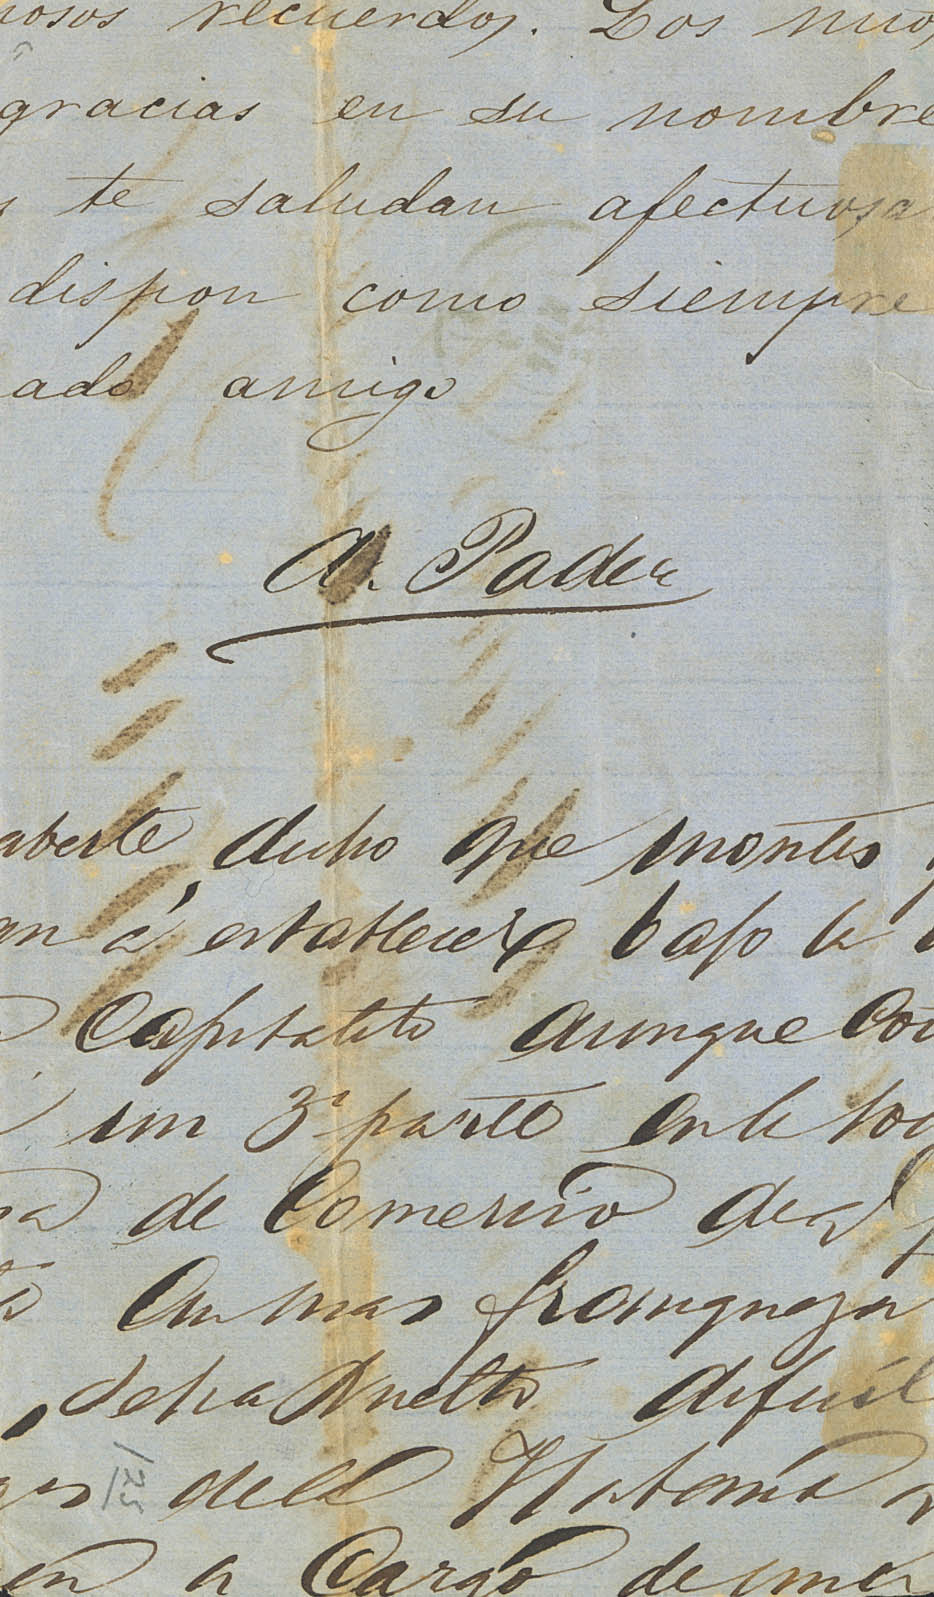 recuerdos. Los
gracias en su nombre
te saludan afectuosa
dispon como siempre
ado amigo
A. Pader
dicho que montes
an á establecer bajo la
Capitalito aunque
un 3ª parte en la
de Comercio de
en mas franqueza
se ha vuelto difícil
del
en a Cargo de una